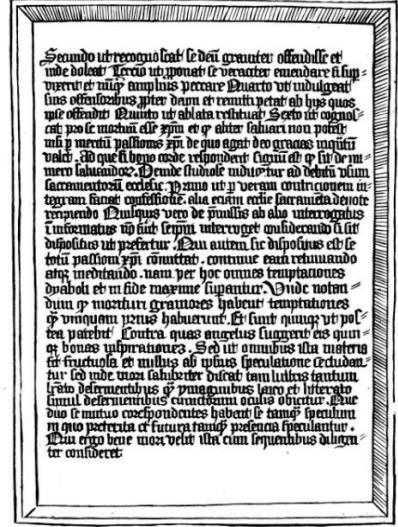 Secundo ut recognoscat se deū grauiter offendisse et
inde doleat Tercio ut pponat se veraciter emendare si sup=
vixerit et nūqȝ amplius peccare Quarto vt indulgeat
suis offensoribus ppter deum et remitti petat ab hijs quos
ipse offendit Quinto ut ablata restituat Sexto ut cognos=
cat pro se mortuū esse xpm et qȝ aliter saluari non potest
nisi p meritū passionis xpi de quo agat deo gracias inqūtū
valet. Ad que si bono corde responderit signū est qȝ sit de nu=
mero saluandoꝝ. Deinde studiose inducatur ad debitū vsum
sacramentorū ecclesie. Primo ut p veram contricionem in=
tegram faciat confessionē. alia eciam ecclie sacramēta deuote
recipiendo Quisquis vero de pmissis ab alio interrogatus
et informatus nō fuit seipm interroget considerando si sit
dispositus ut prefertur. Qui autem sic dispositus est se
totū passioni xpi cōmittat. continue eam retinuando
atqȝ meditando. nam per hoc omnes temptaciones
dyaboli et in fide maxime supantur. Unde notan=
dum qȝ morituri grauiores habent temptationes
qȝ vmquam prius habuerunt. Et sunt quinqȝ ut pos=
tea patebit Contra quas angelus suggerit eis quin=
qȝ bonas inspirationes. Sed ut omnibus ista materia
sit fructuosa et nullus ab ipsius speculatione secludan=
tur sed inde mori salubriter discat tam litteris tantum
lrato deseruientibus qȝ ymaginibus laico et litterato
simul deseruientibus cunctorum oculis obicitur. Que
duo se mutuo correspondentes habent se tamqȝ speculum
in quo preterita et futura tamqȝ presencia speculantur.
Qui ergo bene mori velit ista cum sequentibus diligen=
ter consideret